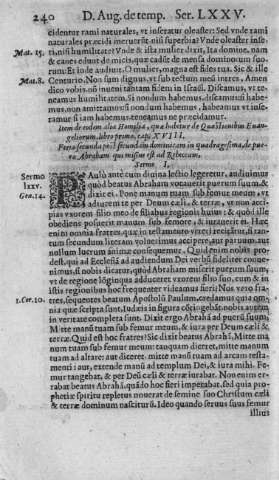 240 D. Aug. de temp. Ser. LXXV.
cidentur rami naturales, vt inseratur oleaster: Sed vnde rami
naturales præcidi meruerūt nisi superbia? Vnde oleaster inseri,
Mat. 15. nisi humilitate? Vnde & ista mulier dixit, Ita domine, nam
& canes edunt de micis, quæ cadūt de mensa dominorum suo-
rum. Et inde audiuit. O mulier, magna est fides tua. Sic & ille
Mat. 8. Centurio, Non sum dignus, vt sub tectum meū intres, Amen
dico vobis, nō inueni tantam fidem in Israël. Discamus, vt te-
neamus humilitatem. Si nondum habemus, discamus: si habe-
mus, non amittamus: si nondum habemus, habeamus vt inse-
ramur: si iam habemus, teneamus ne præcidamur.
Item de eodem alia Homilia, quæ habetur de Quæstionibus Euan-
geliorum, libro primo, cap. XVIII.
Feria secunda post secundam dominicam in quadragesima, de pue-
ro Abraham qui missus est ad Rebeccam.
Sermo I.
Sermo lxxv. PAulò antè cum diuina lectio legeretur, audiuimus
Gen. 24. quòd beatus Abraham vocauerit puerum suum, &
dixit ei: Pone manum tuam sub femore meum, vt
adiurem te per Deum cæli, & terræ, vt non acci-
pias vxorem filio meo de filiabus regionis huius: & quòd ille
obediens posuerit manum sub femore, & iurauerit ei. Hæc
enim omnia fratres, quæ in testamento veteri recitātur, si tan-
tum secundum literam voluerimus accipere, aut parum, aut
nullum lucrum animæ consequemur. Quid enim nobis pro-
dest, qui ad Ecclesiā ad audiendum Dei verbū fideliter conue-
nimus, si nobis dicatur, quòd Abraham miserit puerum suum,
vt de regione lōginqua adduceret vxorem filio suo, cum & in
his regionibus hoc frequenter videamus fieri? Nos vero fra-
1. Cor. 10. tres, sequentes beatum Apostolū Paulum, credamus quia om-
nia quæ scripta sunt, Iudæis in figura cōtingebāt: nobis autem
in veritate completa sunt. Dixit ergo Abrahā ad puerū suum,
Mitte manū tuam sub femur meum, & iura per Deum cæli &
terræ. Quid est hoc fratres? Sic dixit beatus Abrahā, Mitte ma-
num tuam sub femur meum: tanquam diceret, mitte manum
tuam ad altare: aut diceret, mitte manū tuam ad arcam testa-
menti: aut, extende manū ad templum Dei, & iura mihi. Fe-
mur tangebat, & per Deū cæli & terræ iurabat. Non enim er-
rabat beatus Abrahā, quādo hoc fieri imperabat, sed quia pro-
phetiæ spiritu repletus nouerat de semine suo Christum cæli
& terræ dominum nasciturū. Ideo quando seruus suus femur
illius